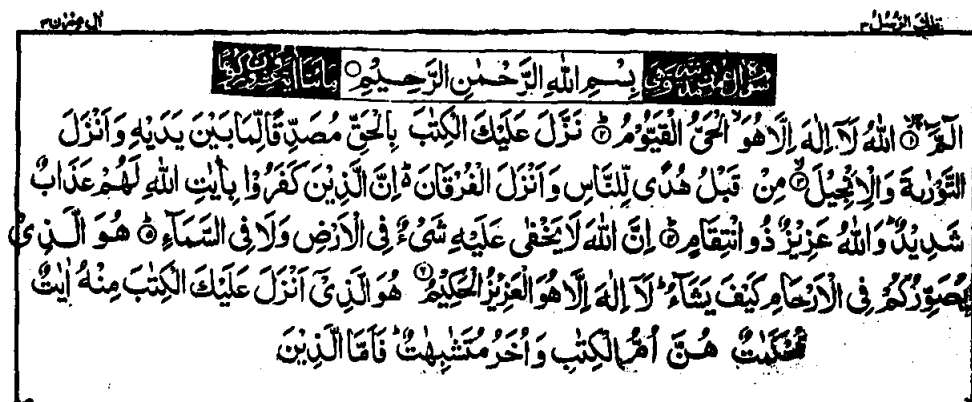 تلك الرسل ٣ اٰل عمرٰن ٣
سورة اٰل عمرٰن مدنية وهى بِسْمِ اللهِ الرَّحْمٰنِ الرَّحِيْمِ مائتا اٰية وعشرون ركوعا
الٓمّٓ ۙ﴿۱﴾ اللهُ لَاۤ اِلٰهَ اِلَّا هُوَ ۙ الْحَىُّ الْقَيُّوْمُ ؕ﴿۲﴾ نَزَّلَ عَلَيْكَ الْكِتٰبَ بِالْحَقِّ مُصَدِّقًا لِّمَا بَيْنَ يَدَيْهِ وَاَنْزَلَ
التَّوْرٰىةَ وَالْاِنْجِيْلَ ۙ﴿۳﴾ مِنْ قَبْلُ هُدًى لِّلنَّاسِ وَاَنْزَلَ الْفُرْقَانَ ؕ اِنَّ الَّذِيْنَ كَفَرُوْا بِاٰيٰتِ اللهِ لَهُمْ عَذَابٌ
شَدِيْدٌ ؕ وَاللهُ عَزِيْزٌ ذُو انْتِقَامٍ ؕ﴿۴﴾ اِنَّ اللهَ لَا يَخْفٰى عَلَيْهِ شَىْءٌ فِى الْاَرْضِ وَلَا فِى السَّمَآءِ ؕ﴿۵﴾ هُوَ الَّذِىْ
يُصَوِّرُكُمْ فِى الْاَرْحَامِ كَيْفَ يَشَآءُ ؕ لَاۤ اِلٰهَ اِلَّا هُوَ الْعَزِيْزُ الْحَكِيْمُ ﴿۶﴾ هُوَ الَّذِىْۤ اَنْزَلَ عَلَيْكَ الْكِتٰبَ مِنْهُ اٰيٰتٌ
مُّحْكَمٰتٌ هُنَّ اُمُّ الْكِتٰبِ وَاُخَرُ مُتَشٰبِهٰتٌ ؕ فَاَمَّا الَّذِيْنَ